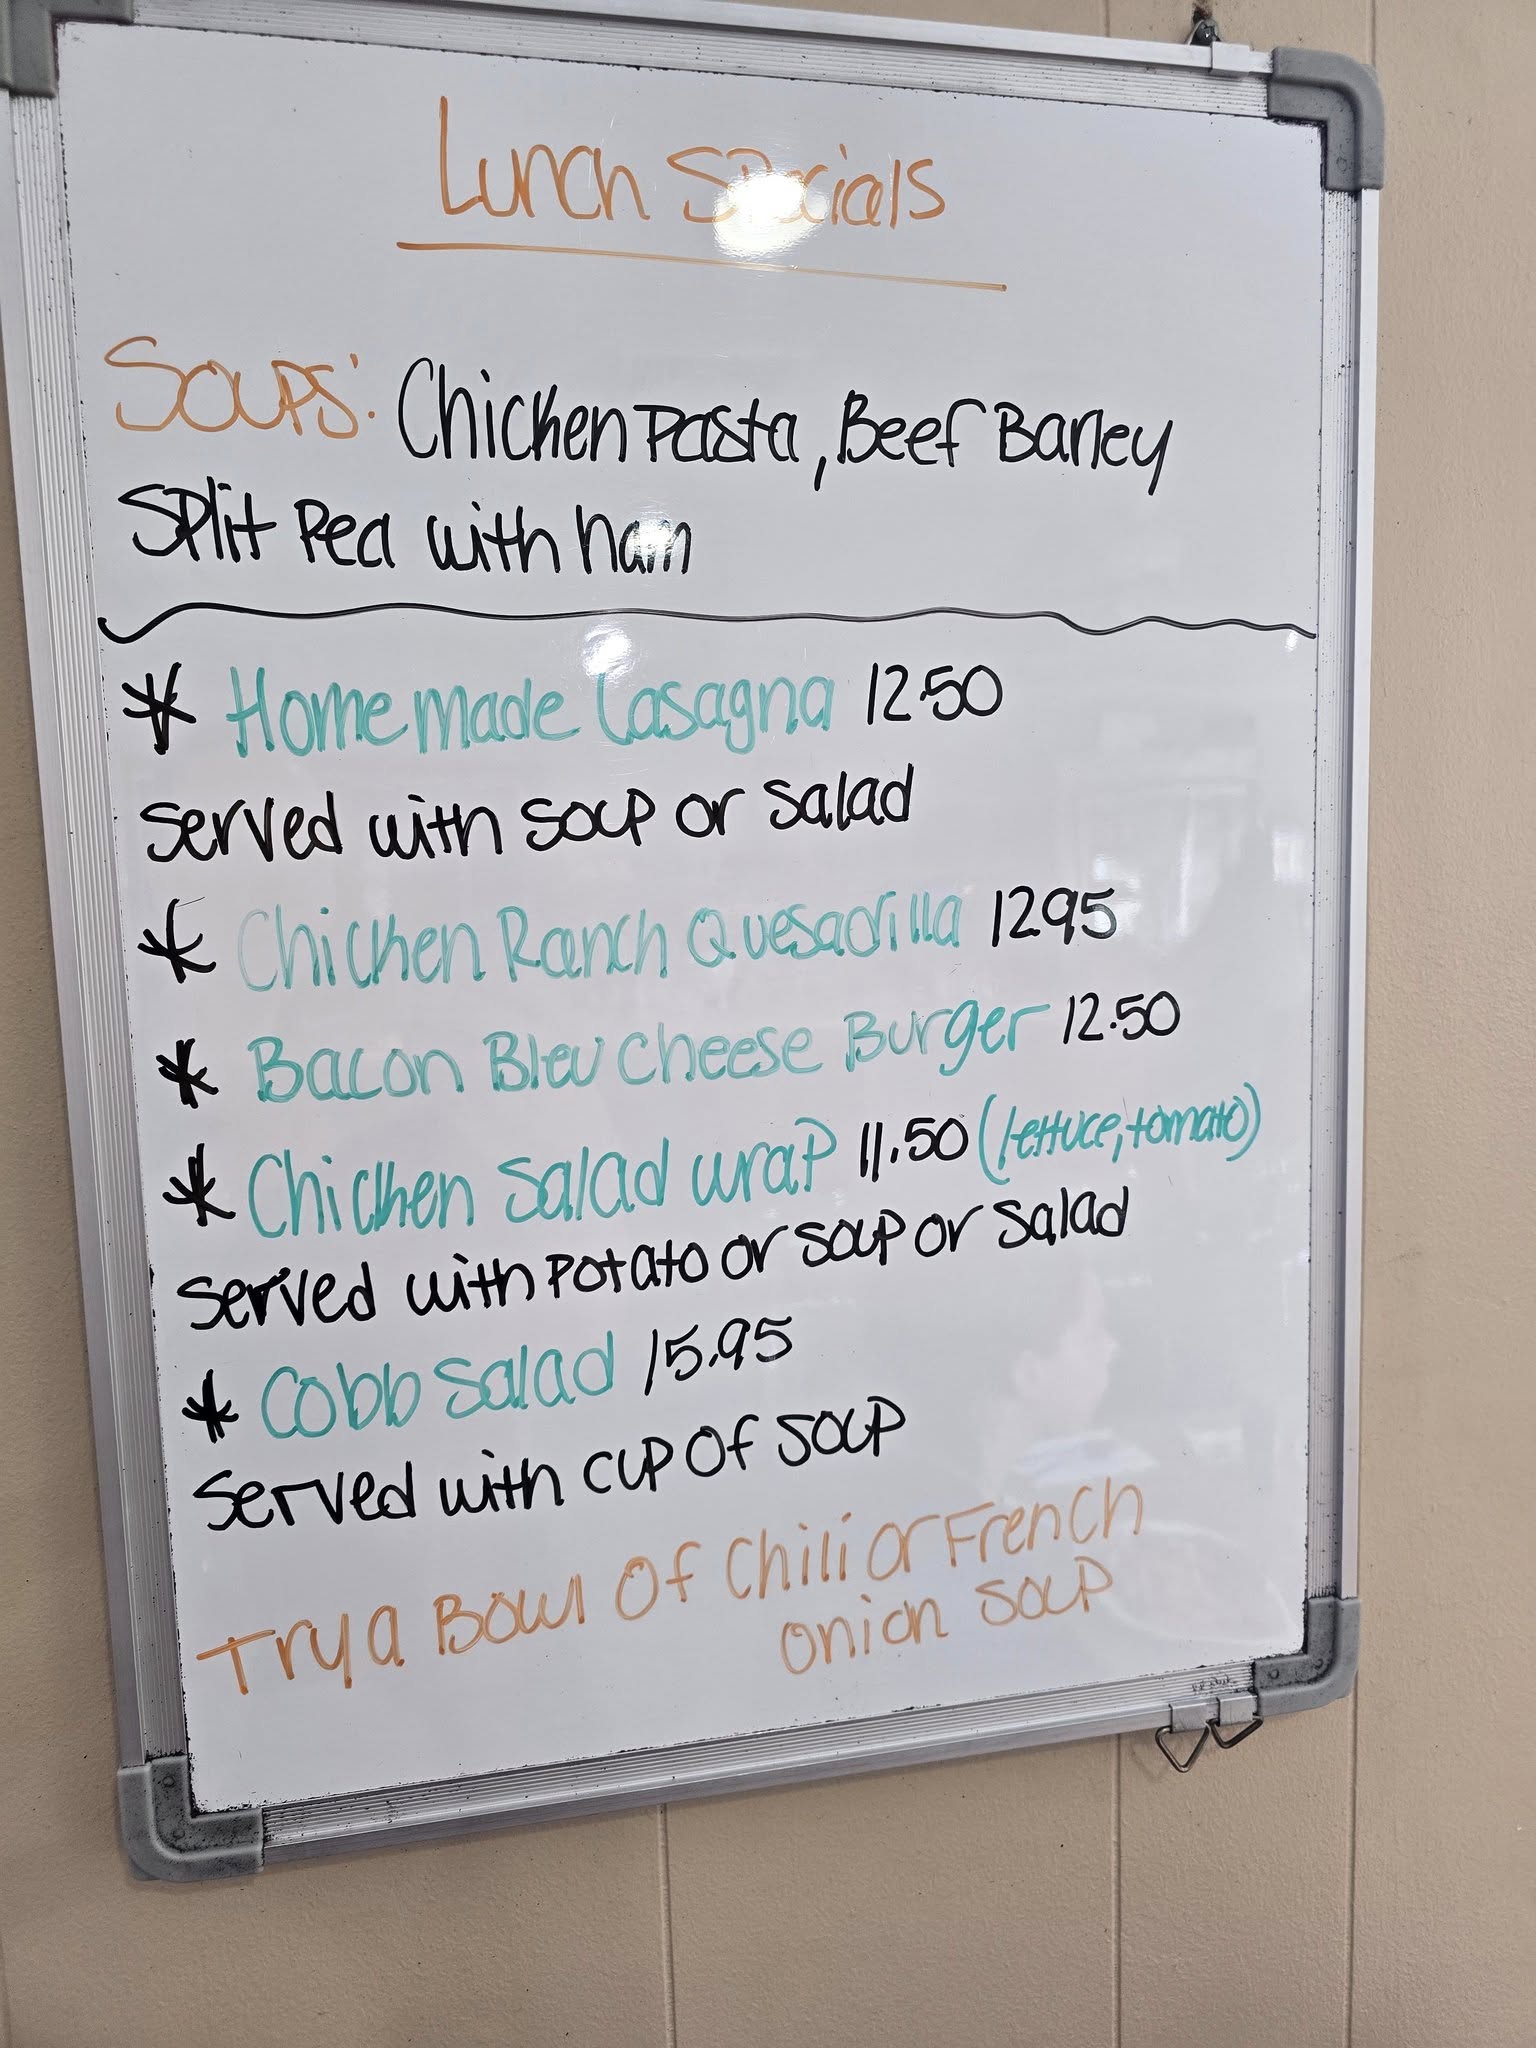 Lunch Specials
Soups: Chicken Pasta, Beef Barley
Split Pea with ham
* Homemade Lasagna 12.50
Served with Soup or Salad
* Chicken Ranch Quesadilla 1295
* Bacon Bleu Cheese Burger 12.50
* Chicken Salad wrap 11.50 (lettuce, tomato)
Served with potato or soup or salad
* Cobb Salad 15.95
Served with cup of soup
Try a Bowl of Chili or French
onion soup